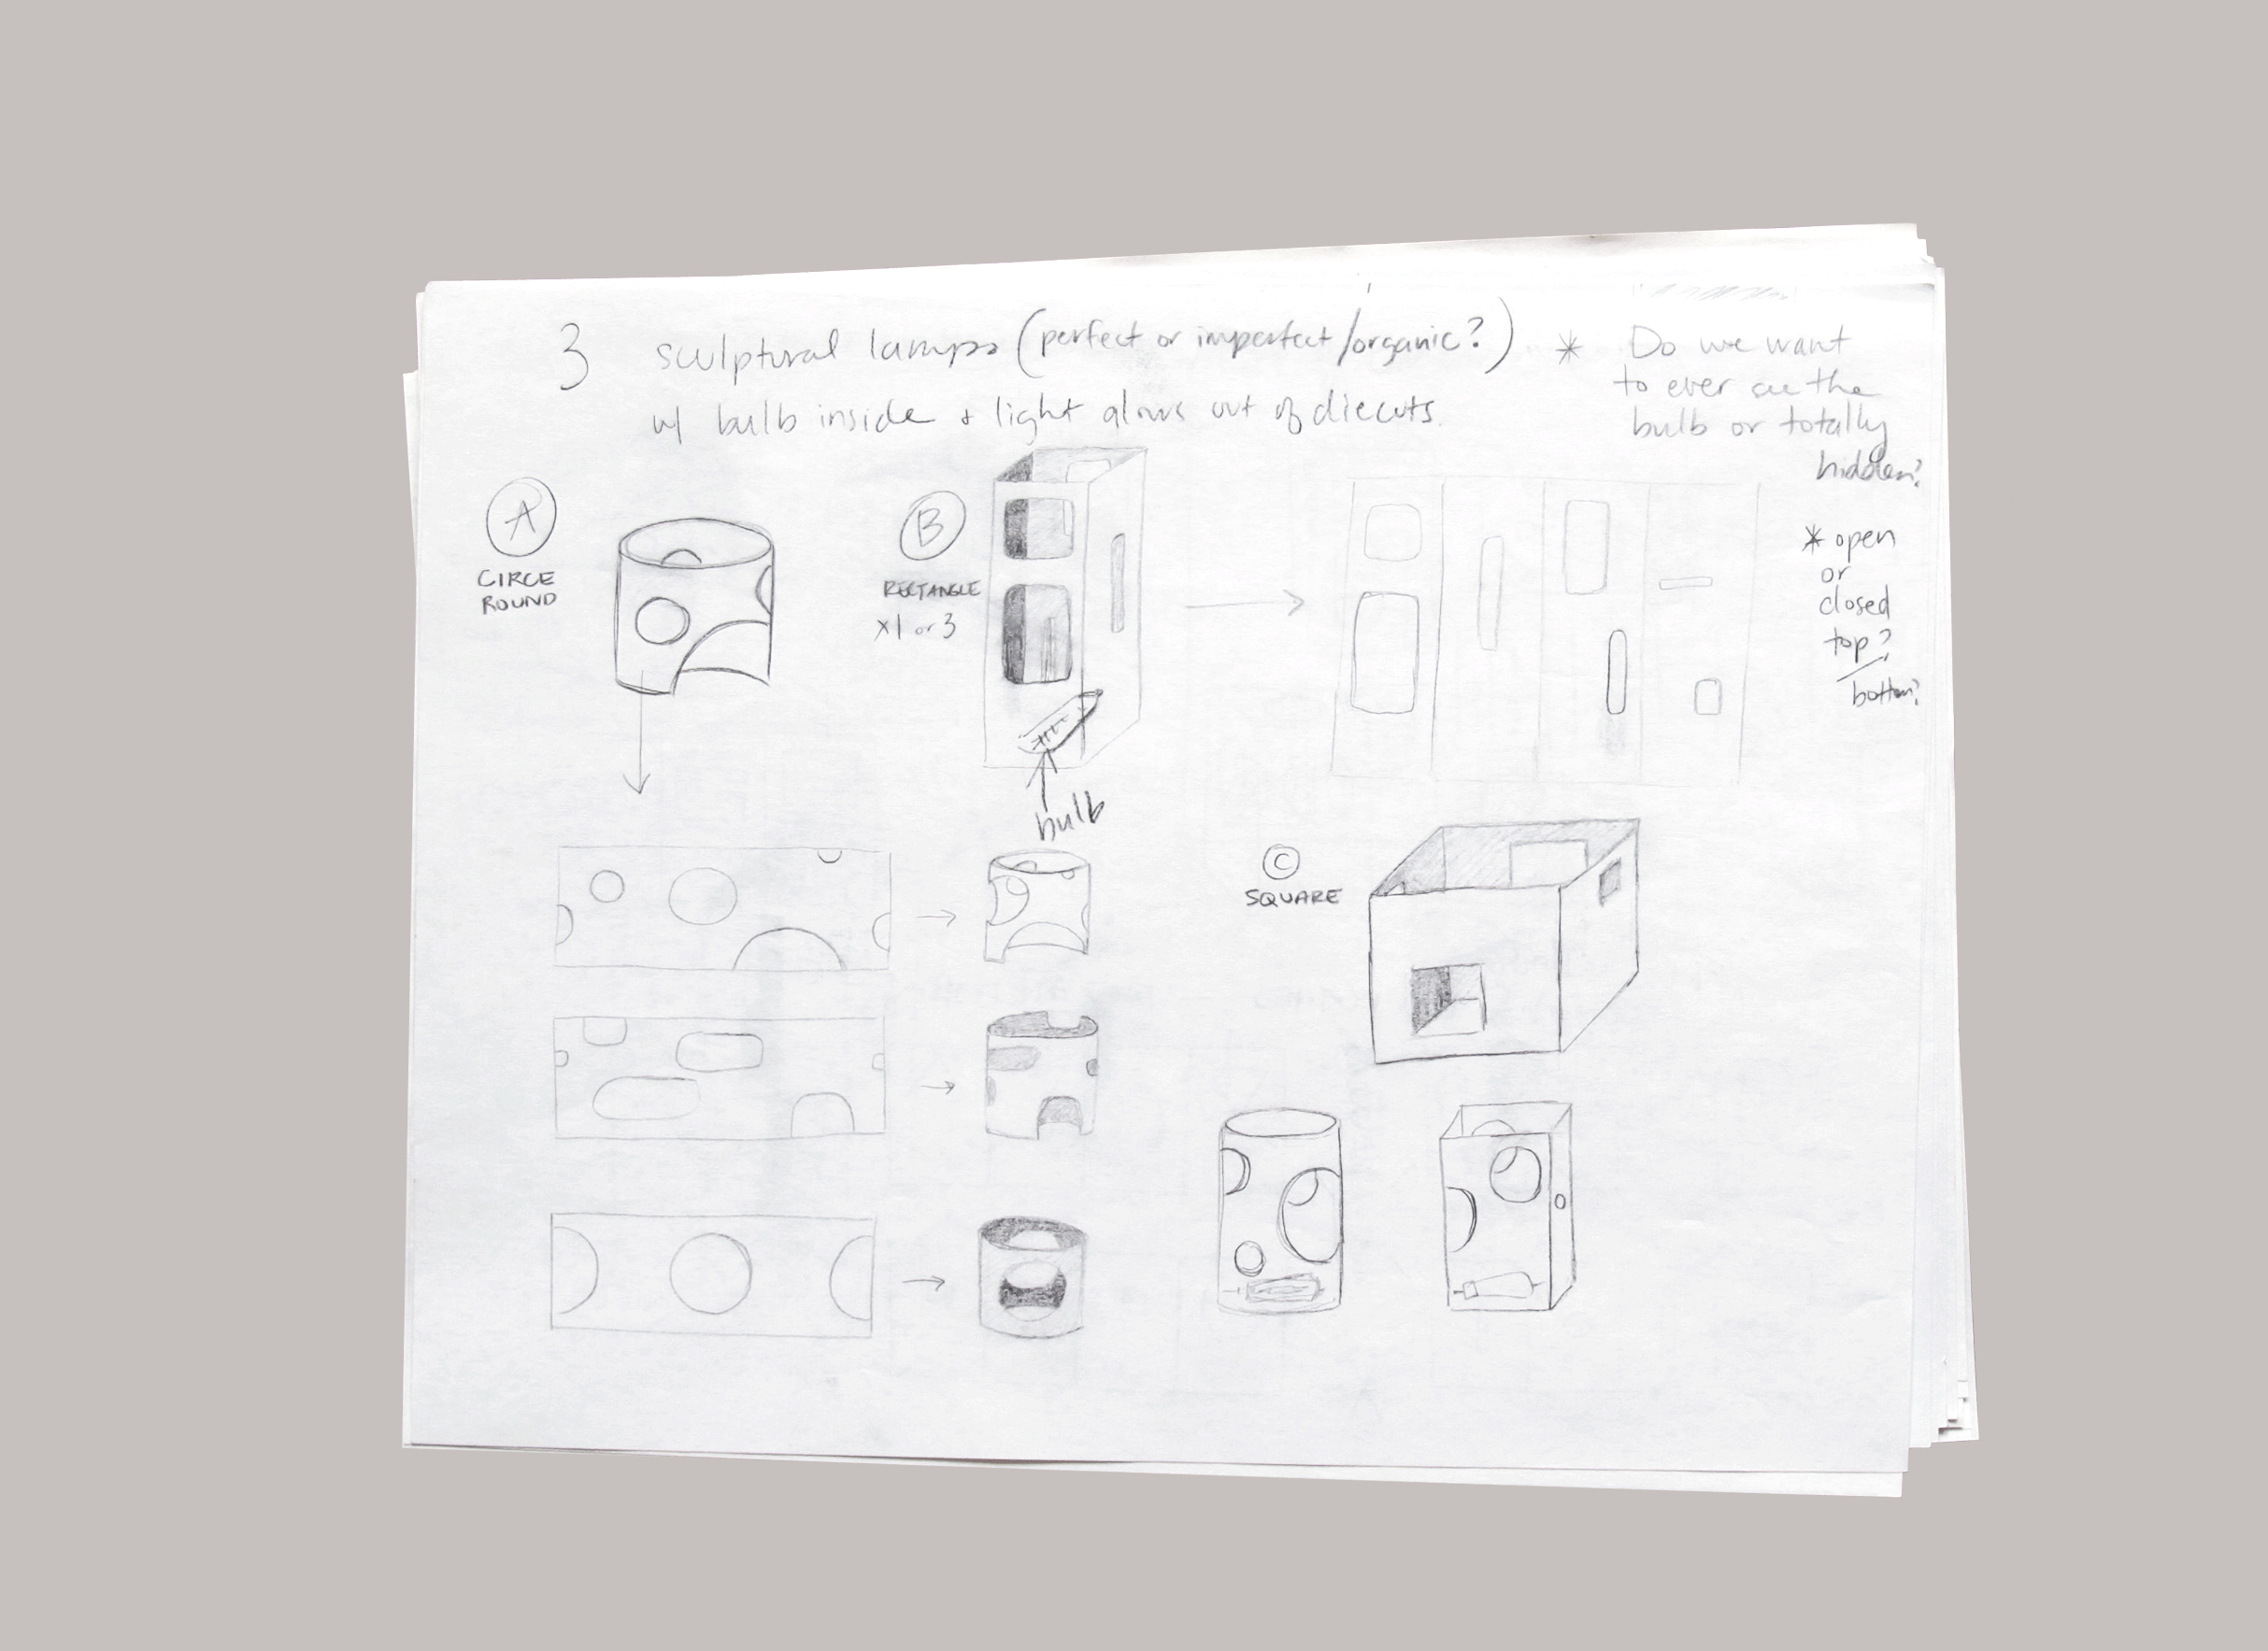 3 sculptural lamps (perfect or imperfect/organic?)
w/ bulb inside + light glows out of diecuts.
* Do we want
to ever see the
bulb or totally
hidden?
* open
or
closed
top?
/
bottom?
A
CIRCE
ROUND
B
RECTANGLE
x1 or 3
bulb
C
SQUARE